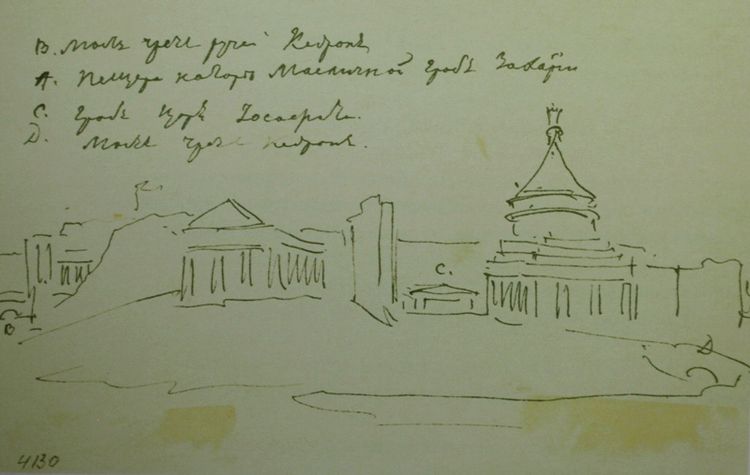 B. Мостъ чрезъ ручей Кедронъ
A. Пещера на горѣ Масличной гробъ Захарiи
C. Гробъ Царя
D. Мостъ чрезъ Кедронъ.
C.
B
D
4130